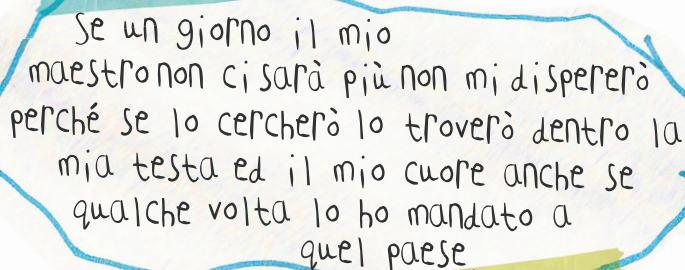 Se un giorno il mio
maestro non ci sarà più non mi dispererò
perché se lo cercherò lo troverò dentro la
mia testa ed il mio cuore anche se
qualche volta lo ho mandato a
quel paese